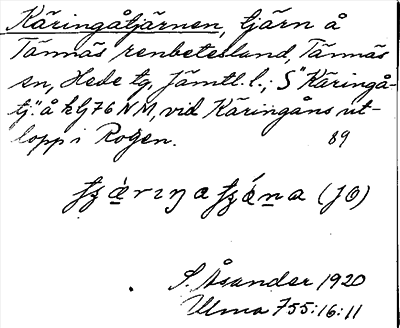 Käringåtjärnen, tjärn å
Tännäs renbetesland, Tännäs
sn, Hede tg, Jämtl. l.; S "Käringå-
tj." å kbl 76 NM, vid Käringåns ut-
lopp i Rogen. 89
(JO)
S. Åsander 1920
Ulma 755:16:11